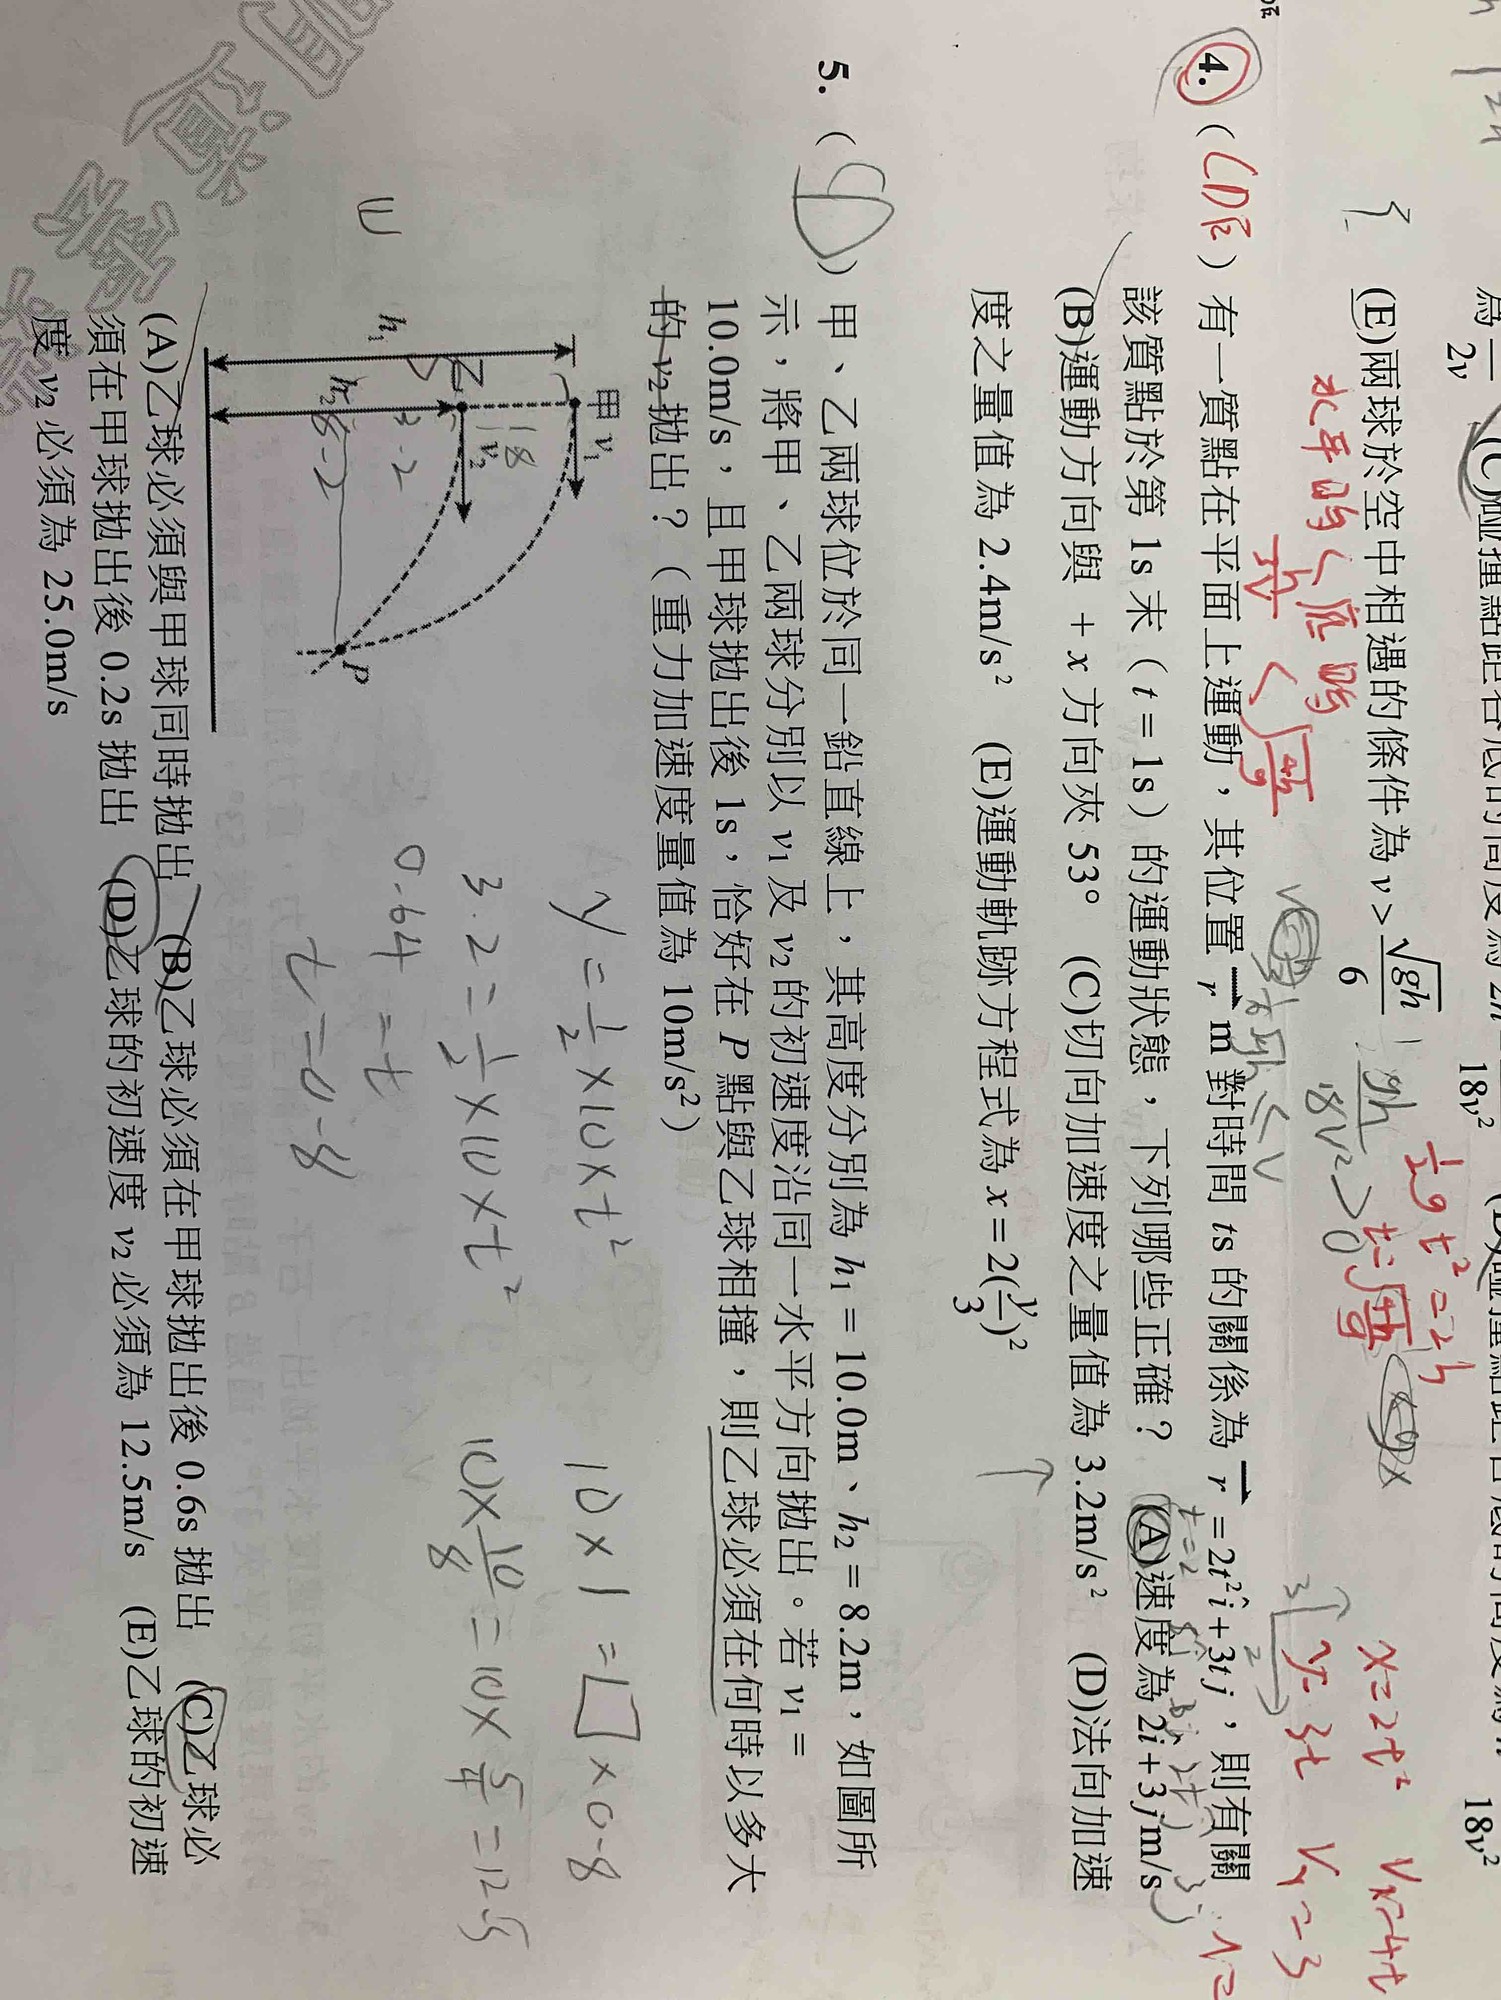 為 2v (C)碰撞點距谷底的高度為 2h 18v² 18v²
(E)兩球於空中相遇的條件為 v > √gh / 6
水平時 < 底時
½gt² = 2h
x = 2t² Vx = 4t
y = 3t Vy = 3
4. (CDE) 有一質點在平面上運動，其位置 r m 對時間 ts 的關係為 r = 2t² i + 3t j，則有關
該質點於第 1s 末（t = 1s）的運動狀態，下列哪些正確？ (A)速度為 2i + 3j m/s
(B)運動方向與 + x 方向夾 53° (C)切向加速度之量值為 3.2m/s² (D)法向加速
度之量值為 2.4m/s² (E)運動軌跡方程式為 x = 2(y/3)²
5. ( D ) 甲、乙兩球位於同一鉛直線上，其高度分別為 h₁ = 10.0m、h₂ = 8.2m，如圖所
示，將甲、乙兩球分別以 v₁ 及 v₂ 的初速度沿同一水平方向拋出。若 v₁ =
10.0m/s，且甲球拋出後 1s，恰好在 P 點與乙球相撞，則乙球必須在何時以多大
的 v₂ 拋出？（重力加速度量值為 10m/s²）
甲 v₁
乙 v₂
1.8
h₁
h₂
3.2
P
y = ½ × 10 × t²
3.2 = ½ × 10 × t²
0.64 = t
t = 0.8
10 × 1 = □ × 0.8
10 × 10/8 = 10 × 5/4 = 12.5
(A)乙球必須與甲球同時拋出 (B)乙球必須在甲球拋出後 0.6s 拋出 (C)乙球必
須在甲球拋出後 0.2s 拋出 (D)乙球的初速度 v₂ 必須為 12.5m/s (E)乙球的初速
度 v₂ 必須為 25.0m/s